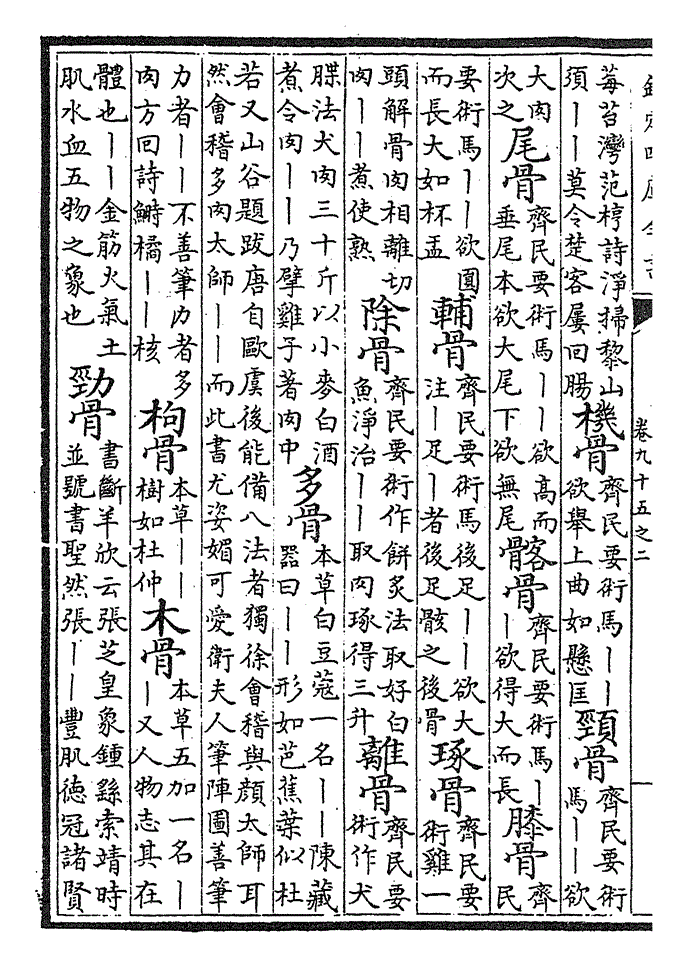 欽定四庫全書
卷九十五之二
莓苔灣范梈詩淨掃黎山機骨齊民要術馬丨丨頸骨齊民要術
須丨丨莫令楚客屢回腸欲舉上曲如懸匡馬丨丨欲
大肉尾骨齊民要術馬丨丨欲高而髂骨齊民要術馬丨膝骨齊
次之垂尾本欲大尾下欲無尾丨欲得大而長民
要術馬丨丨欲圓輔骨齊民要術馬後足丨丨欲大琢骨齊民要
而長大如杯盂注丨足丨者後足骸之後骨術雞一
頭解骨肉相離切除骨齊民要術作餅炙法取好白離骨齊民要
肉丨丨煮使熟魚淨治丨丨取肉琢得三升術作犬
䐑法犬肉三十斤以小麥白酒多骨本草白豆蔻一名丨丨陳藏
煮令肉丨丨乃擘雞子著肉中器曰丨丨形如芭蕉葉似杜
若又山谷題跋唐自歐虞後能備八法者獨徐會稽與顔太師耳
然會稽多肉太師丨丨而此書尤姿媚可愛衛夫人筆陣圖善筆
力者丨丨不善筆力者多枸骨本草丨丨木骨本草五加一名丨
肉方回詩鰣橘丨丨核樹如杜仲丨又人物志其在
體也丨丨金筋火氣土勁骨書斷羊欣云張芝皇象鍾繇索靖時
肌水血五物之象也並號書聖然張丨丨豐肌徳冠諸賢